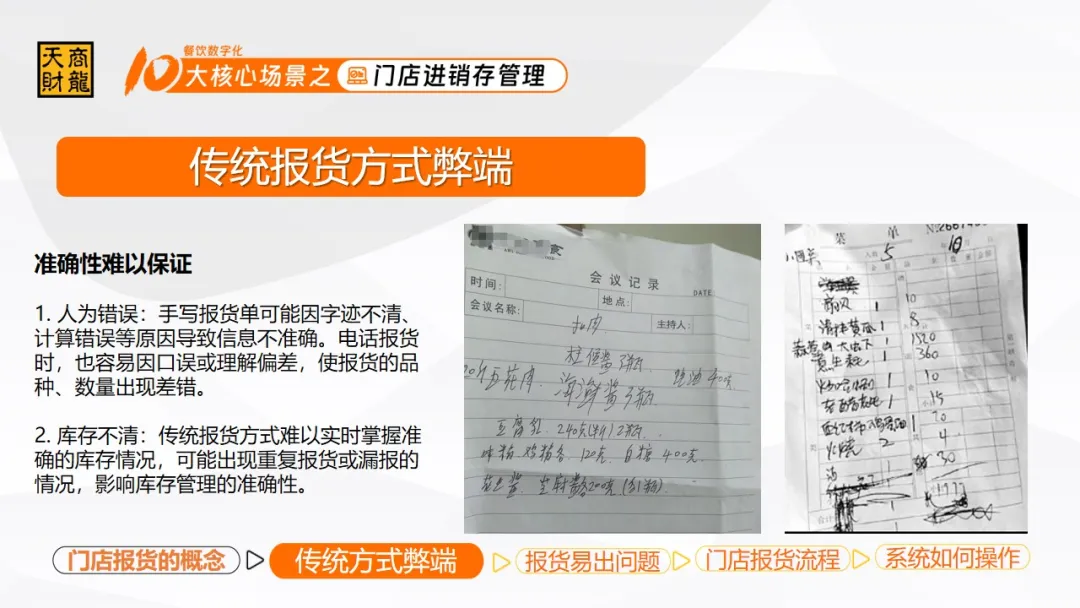 天商
財龍
餐饮数字化
10大核心场景之 门店进销存管理
传统报货方式弊端
准确性难以保证
1. 人为错误：手写报货单可能因字迹不清、
计算错误等原因导致信息不准确。电话报货
时，也容易因口误或理解偏差，使报货的品
种、数量出现差错。
2. 库存不清：传统报货方式难以实时掌握准
确的库存情况，可能出现重复报货或漏报的
情况，影响库存管理的准确性。
会议记录
DATE
时间：
地点：
会议名称：
主持人：
扣肉
柱侯酱 3瓶
五花肉
海鲜酱 3瓶
味粉 鸡精各 120克 白糖 400克
菜单
5
10
1
10
1
8
1
1520
1
360
1
10
1
15
1
火烧 2
4
30
门店报货的概念
传统方式弊端
报货易出问题
门店报货流程
系统如何操作